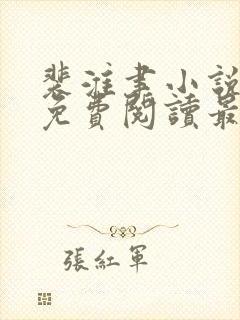 裴淮書小說
免費閱讀最
張紅軍